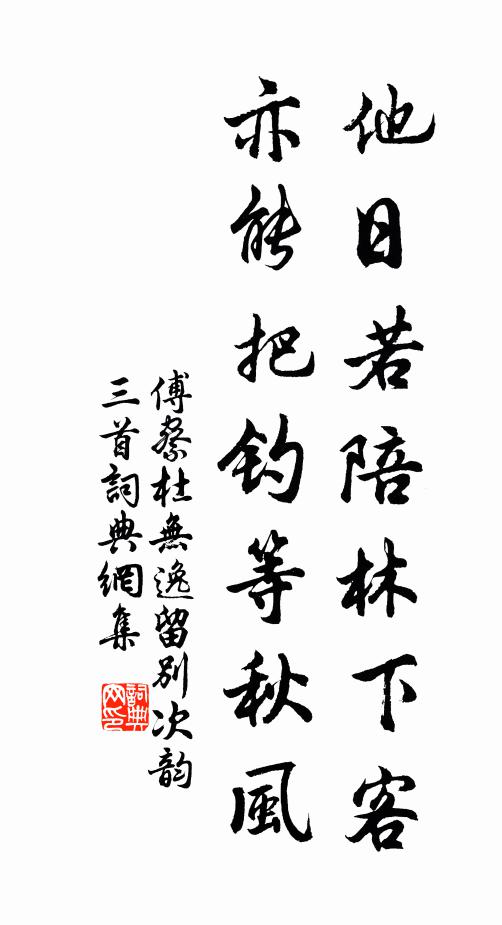 他日若陪林下客
亦能把釣等秋風
傅察杜無逸留別次韵
三首詞典網集
詞典
网印